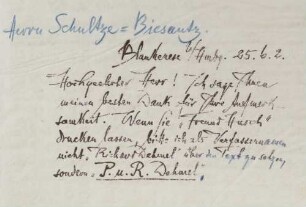 Herrn Schultze-Biesantz.
Blankenese b/Hmbg. 25. 6. 2.
Hochgeehrter Herr! Ich sage Ihnen
meinen besten Dank für Ihre Aufmerk-
samkeit. Wenn Sie „Freund Husch"
drucken lassen, bitte ich als Verfassernamen
nicht „Richard Dehmel" über den Text zu setzen,
sondern „P. u. R. Dehmel".